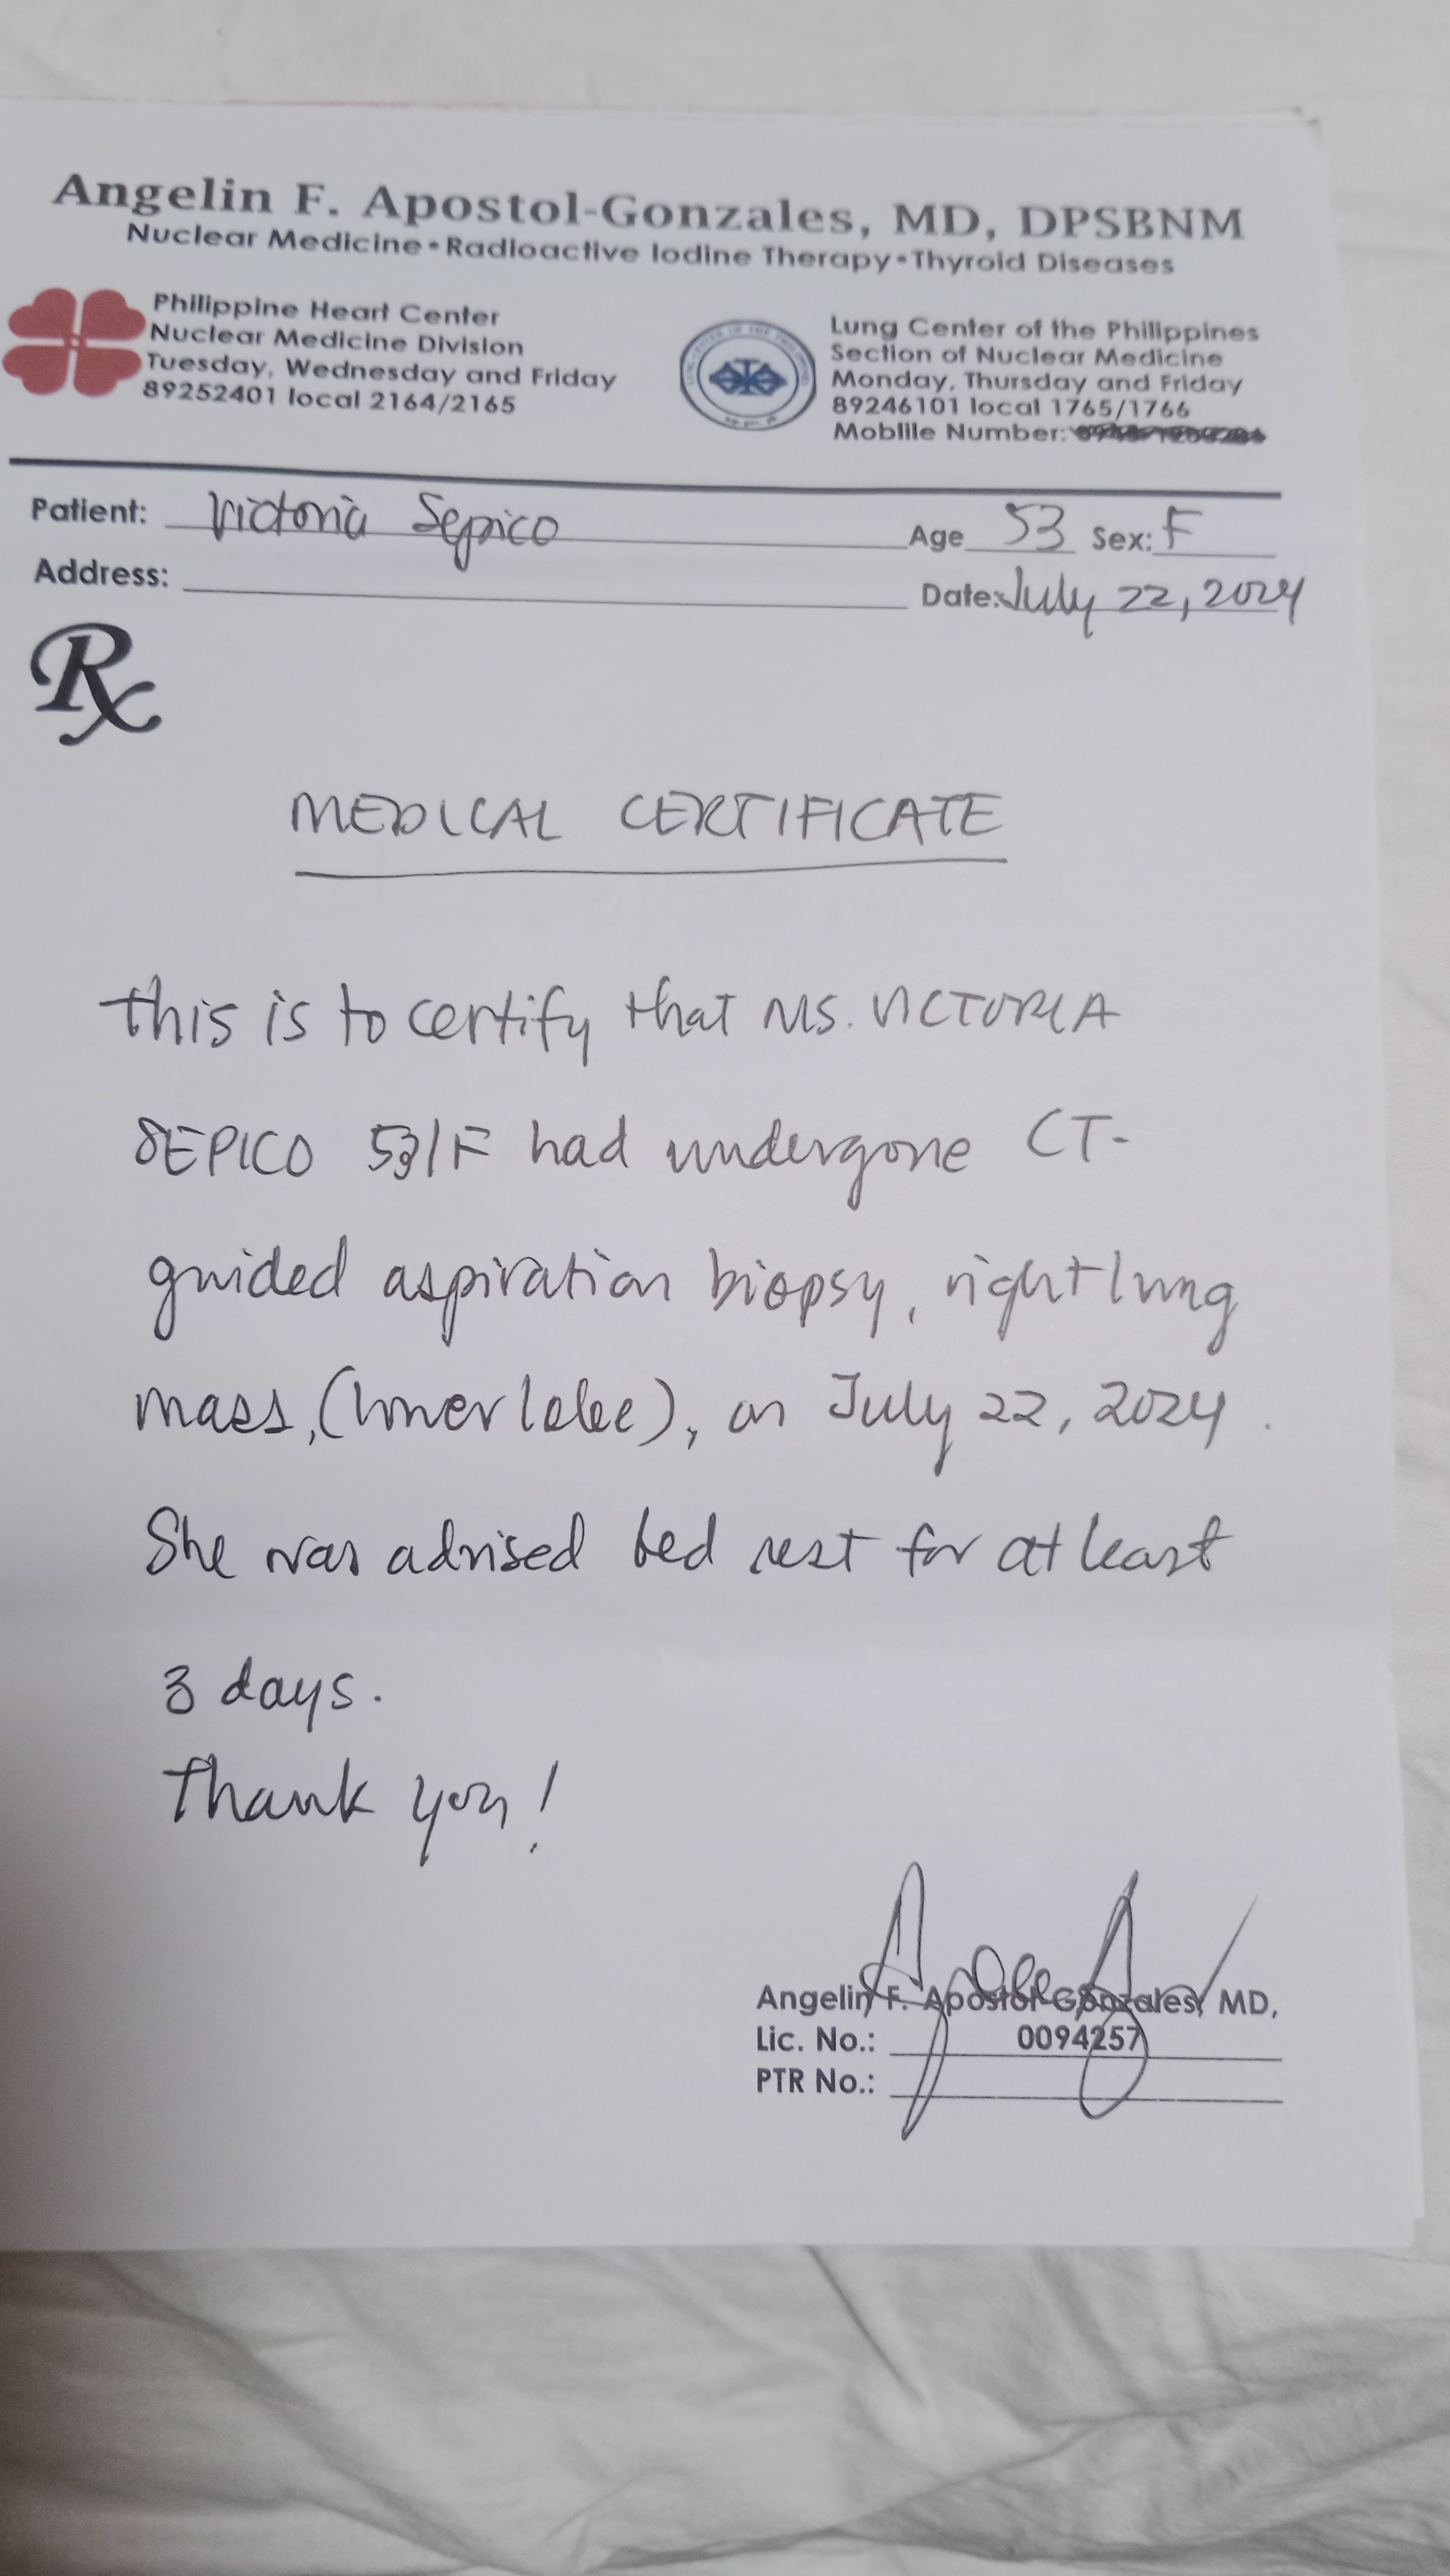 Angelin F. Apostol-Gonzales, MD, DPSBNM
Nuclear Medicine•Radioactive Iodine Therapy•Thyroid Diseases
Philippine Heart Center
Nuclear Medicine Division
Tuesday, Wednesday and Friday
89252401 local 2164/2165
Lung Center of the Philippines
Section of Nuclear Medicine
Monday, Thursday and Friday
89246101 local 1765/1766
Moblile Number:
Patient: Victoria Sepico Age 53 Sex: F
Address: Date: July 22, 2024
Rx
MEDICAL CERTIFICATE
This is to certify that MS. VICTORIA
SEPICO 53/F had undergone CT-
guided aspiration biopsy, right lung
mass, (lower lobe), on July 22, 2024.
She was advised bed rest for at least
3 days.
Thank you!
Angelin F. Apostol-Gonzales, MD,
Lic. No.: 0094257
PTR No.: